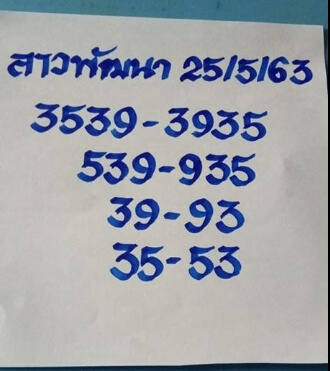 สาวพัฒนา 25/5/63
3539-3935
539-935
39-93
35-53